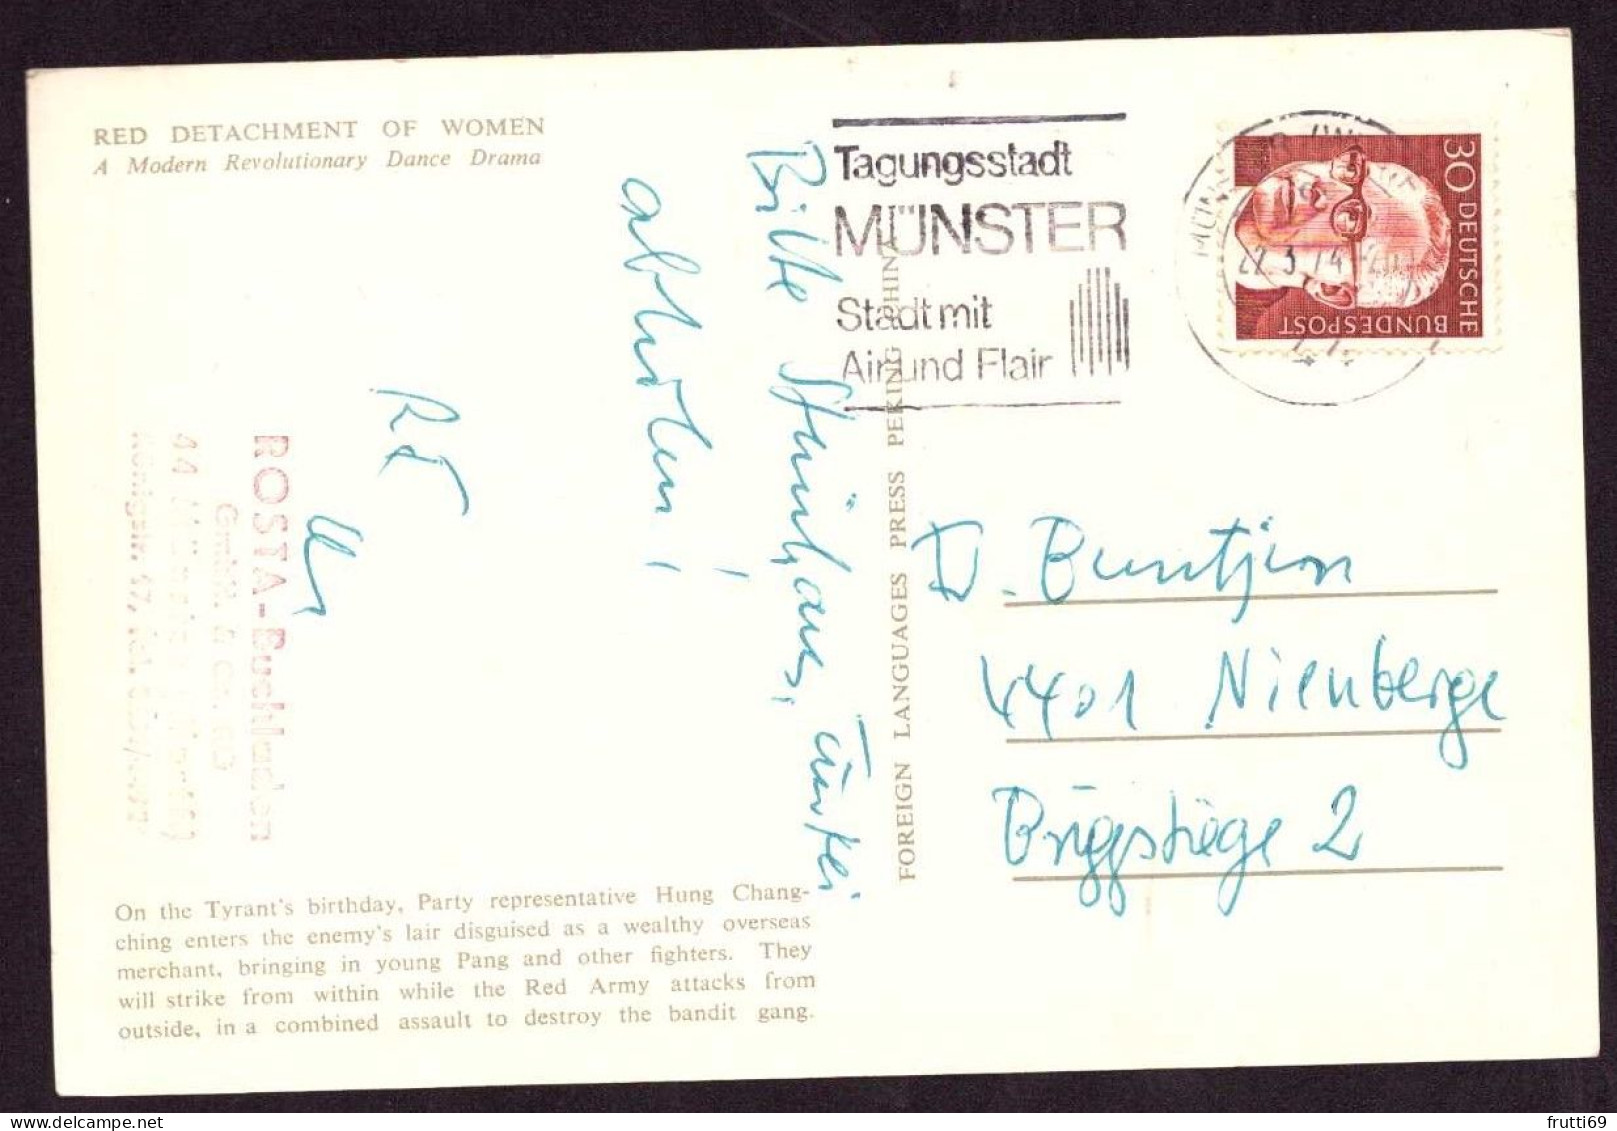 RED DETACHMENT OF WOMEN
A Modern Revolutionary Dance Drama
Bitte Steinhaus, Türkei
abholen!
ROSTA-Buchladen
GmbH. & Co. KG
44 Münster (Westf.)
Königstr. 47, Tel.
On the Tyrant's birthday, Party representative Hung Chang-
ching enters the enemy's lair disguised as a wealthy overseas
merchant, bringing in young Pang and other fighters. They
will strike from within while the Red Army attacks from
outside, in a combined assault to destroy the bandit gang.
FOREIGN LANGUAGES PRESS PEKING CHINA
Tagungsstadt
MÜNSTER
Stadt mit
Air und Flair
22.3.74
30 DEUTSCHE
BUNDESPOST
Buntjen
4401 Nienberge
2
frutti69